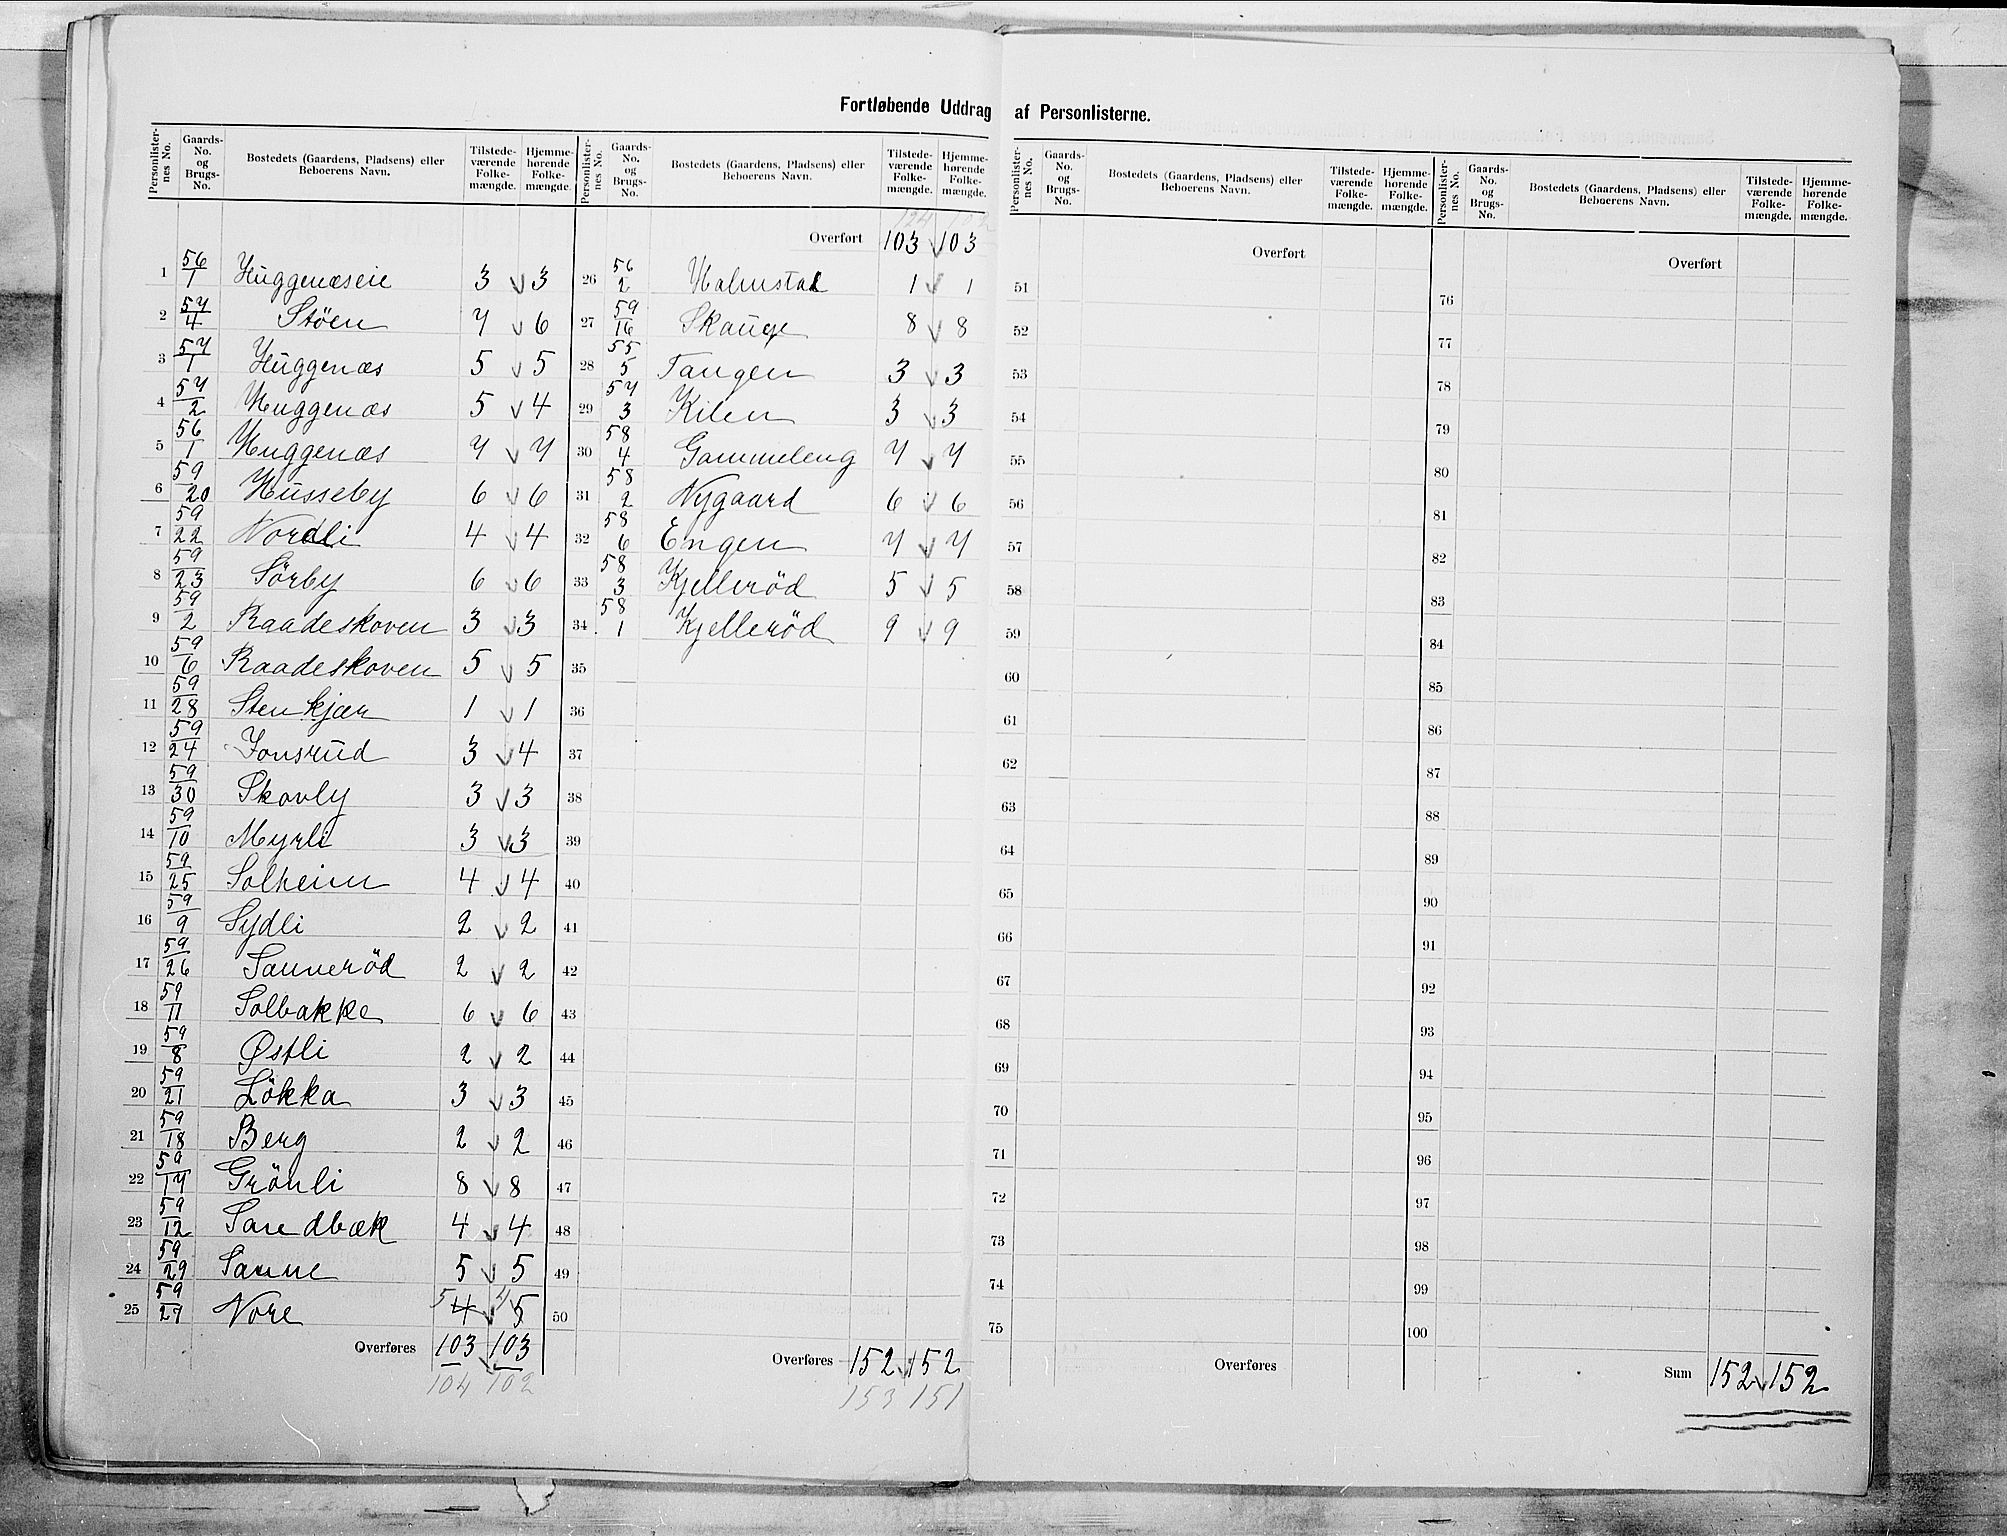 Fortløbende Uddrag af Personlisterne.
Personlister-nes No. | Gaards-No. og Brugs-No. | Bostedets (Gaardens, Pladsens) eller Beboerens Navn. | Tilstede-værende Folke-mængde. | Hjemme-hørende Folke-mængde.
1 56/1 Huggenæseie 3 v 3
2 57/4 Støen 7 v 6
3 57/1 Huggenæs 5 v 5
4 57/2 Huggenæs 5 v 4
5 56/1 Huggenæs 7 v 7
6 59/20 Husseby 6 v 6
7 59/22 Nordli 4 v 4
8 59/23 Sörby 6 v 6
9 59/2 Raadeskoven 3 v 3
10 59/6 Raadeskoven 5 v 5
11 59/28 Stenkjær 1 v 1
12 59/24 Jonsrud 3 v 4
13 59/30 Skovly 3 v 3
14 59/10 Myrli 3 v 3
15 59/25 Solheim 4 v 4
16 59/9 Sydli 2 v 2
17 59/26 Saunerød 2 v 2
18 59/11 Solbakke 6 v 6
19 59/8 Østli 2 v 2
20 59/21 Lökka 3 v 3
21 59/18 Berg 2 v 2
22 59/17 Grönli 8 v 8
23 59/12 Sandbæk 4 v 4
24 59/29 Saune 5 v 5
25 59/27 Nore 5 4 v 4 5
Overføres 103 v 103
104 102
Personlister-nes No. | Gaards-No. og Brugs-No. | Bostedets (Gaardens, Pladsens) eller Beboerens Navn. | Tilstede-værende Folke-mængde. | Hjemme-hørende Folke-mængde.
Overført 103 v 103
26 56/2 Halmstad 1 v 1
27 59/16 Skauge 8 v 8
28 55/5 Tangen 3 v 3
29 57/3 Kilen 3 v 3
30 58/4 Gammeleng 7 v 7
31 58/2 Nygaard 6 v 6
32 58/6 Engen 7 v 7
33 58/3 Kjellerød 5 v 5
34 58/1 Kjellerød 9 v 9
35
36
37
38
39
40
41
42
43
44
45
46
47
48
49
50
Overføres 152 v 152
153 151
Personlister-nes No. | Gaards-No. og Brugs-No. | Bostedets (Gaardens, Pladsens) eller Beboerens Navn. | Tilstede-værende Folke-mængde. | Hjemme-hørende Folke-mængde.
Overført
51
52
53
54
55
56
57
58
59
60
61
62
63
64
65
66
67
68
69
70
71
72
73
74
75
Overføres
Personlister-nes No. | Gaards-No. og Brugs-No. | Bostedets (Gaardens, Pladsens) eller Beboerens Navn. | Tilstede-værende Folke-mængde. | Hjemme-hørende Folke-mængde.
Overført
76
77
78
79
80
81
82
83
84
85
86
87
88
89
90
91
92
93
94
95
96
97
98
99
100
Sum 152 v 152